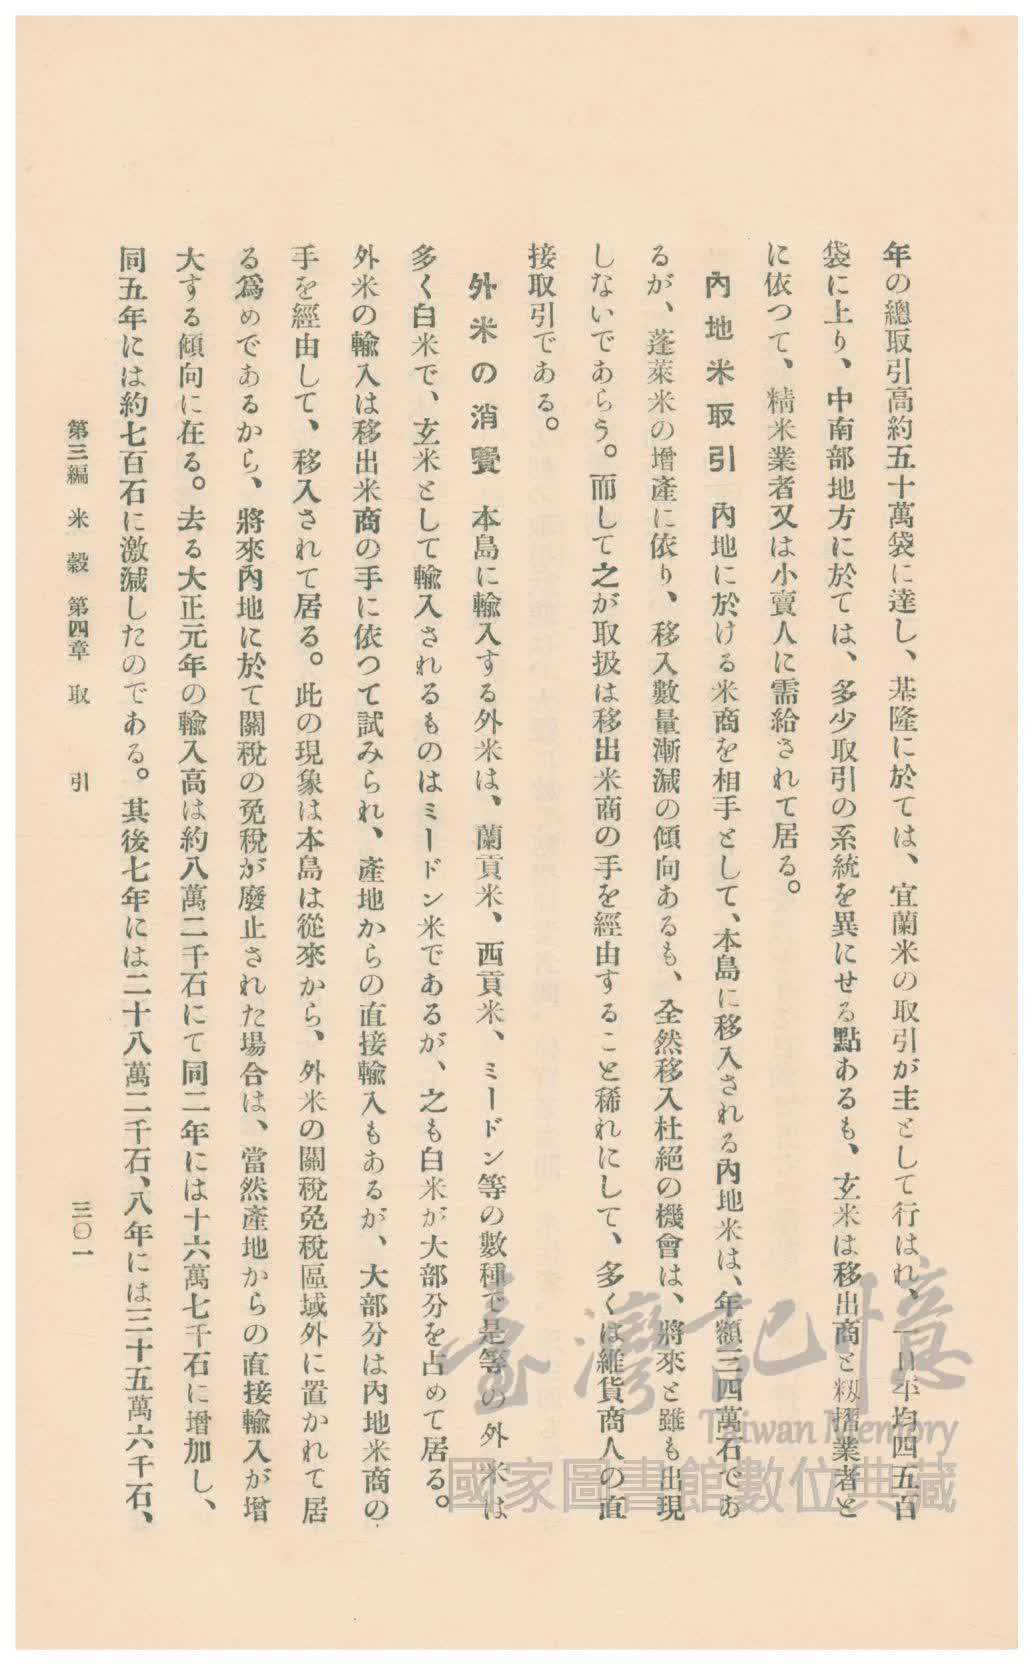 年の總取引高約五十萬袋に達し、基隆に於ては、宜蘭米の取引が主として行はれ、一日平均四五百
袋に上り、中南部地方に於ては、多少取引の系統を異にせる點あるも、玄米は移出商と籾摺業者と
に依つて、精米業者又は小賣人に需給されて居る。
內地米取引 內地に於ける米商を相手として、本島に移入される內地米は、年額三四萬石であ
るが、蓬萊米の增產に依り、移入數量漸減の傾向あるも、全然移入杜絕の機會は、將來と雖も出現
しないであらう。而して之が取扱は移出米商の手を經由すること稀れにして、多くは雜貨商人の直
接取引である。
外米の消費 本島に輸入する外米は、蘭貢米、西貢米、ミードン等の數種で是等の外米は
多く白米で、玄米として輸入されるものはミードン米であるが、之も白米が大部分を占めて居る。
外米の輸入は移出米商の手に依つて試みられ、產地からの直接輸入もあるが、大部分は內地米商の
手を經由して、移入されて居る。此の現象は本島は從來から、外米の關稅免稅區域外に置かれて居
る爲めであるから、將來內地に於て關稅の免稅が廢止された場合は、當然產地からの直接輸入が增
大する傾向に在る。去る大正元年の輸入高は約八萬二千石にて同二年には十六萬七千石に增加し、
同五年には約七百石に激減したのである。其後七年には二十八萬二千石、八年には三十五萬六千石、
第三編 米穀 第四章 取引
三〇一
臺灣記憶
Taiwan Memory
國家圖書館數位典藏